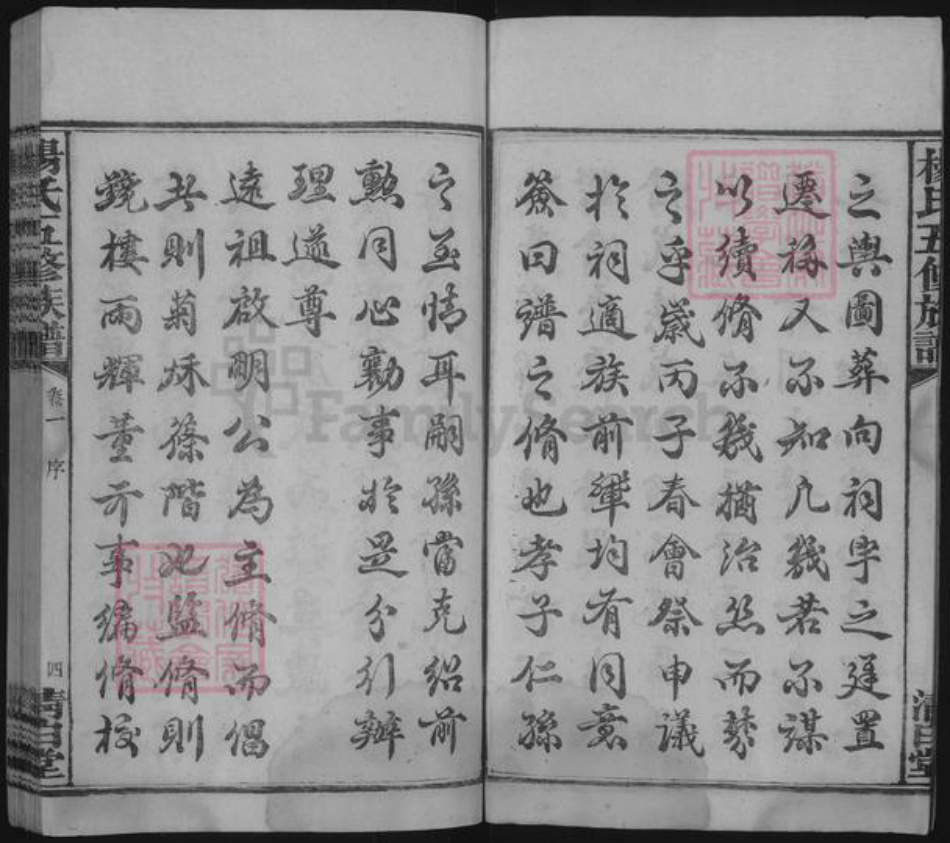 楊氏五修族譜
清白堂
之輿圖葬向祠宇之建置
遷移又不知凡幾若不謀
以續脩不幾猶治絲而棼
之乎歲丙子春會祭申議
於祠適族前輩均有同意
僉曰譜之脩也孝子仁孫
之至情耳嗣孫當克紹前
勲同心勷事於是分引辦
理遂尊
遠祖啟明公為主脩而倡
其則菊秌篠階也監脩則
競樓雨輝董亓事編脩校
楊氏五修族譜
卷一
序
四
清白堂
FamilySearch